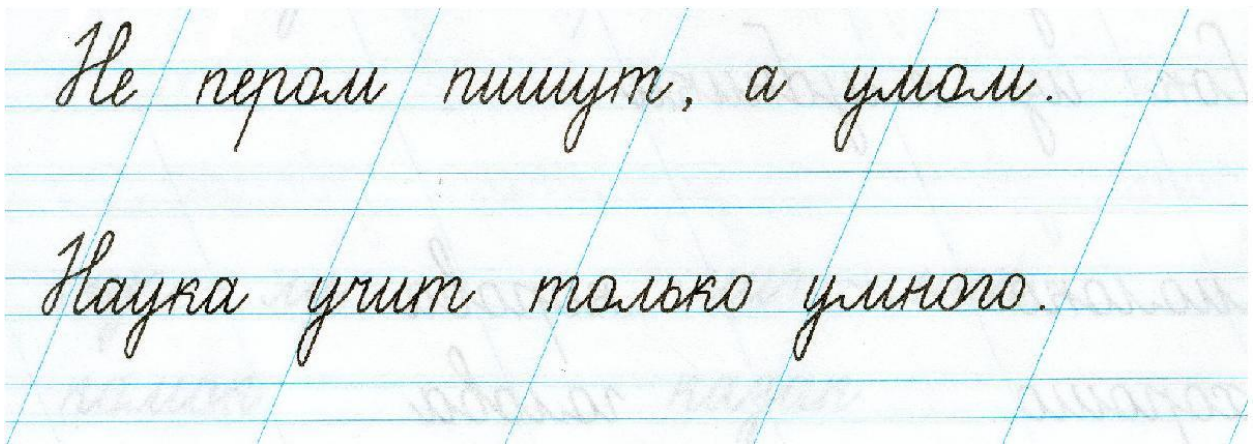 Не пером пишут, а умом.
Наука учит только умного.